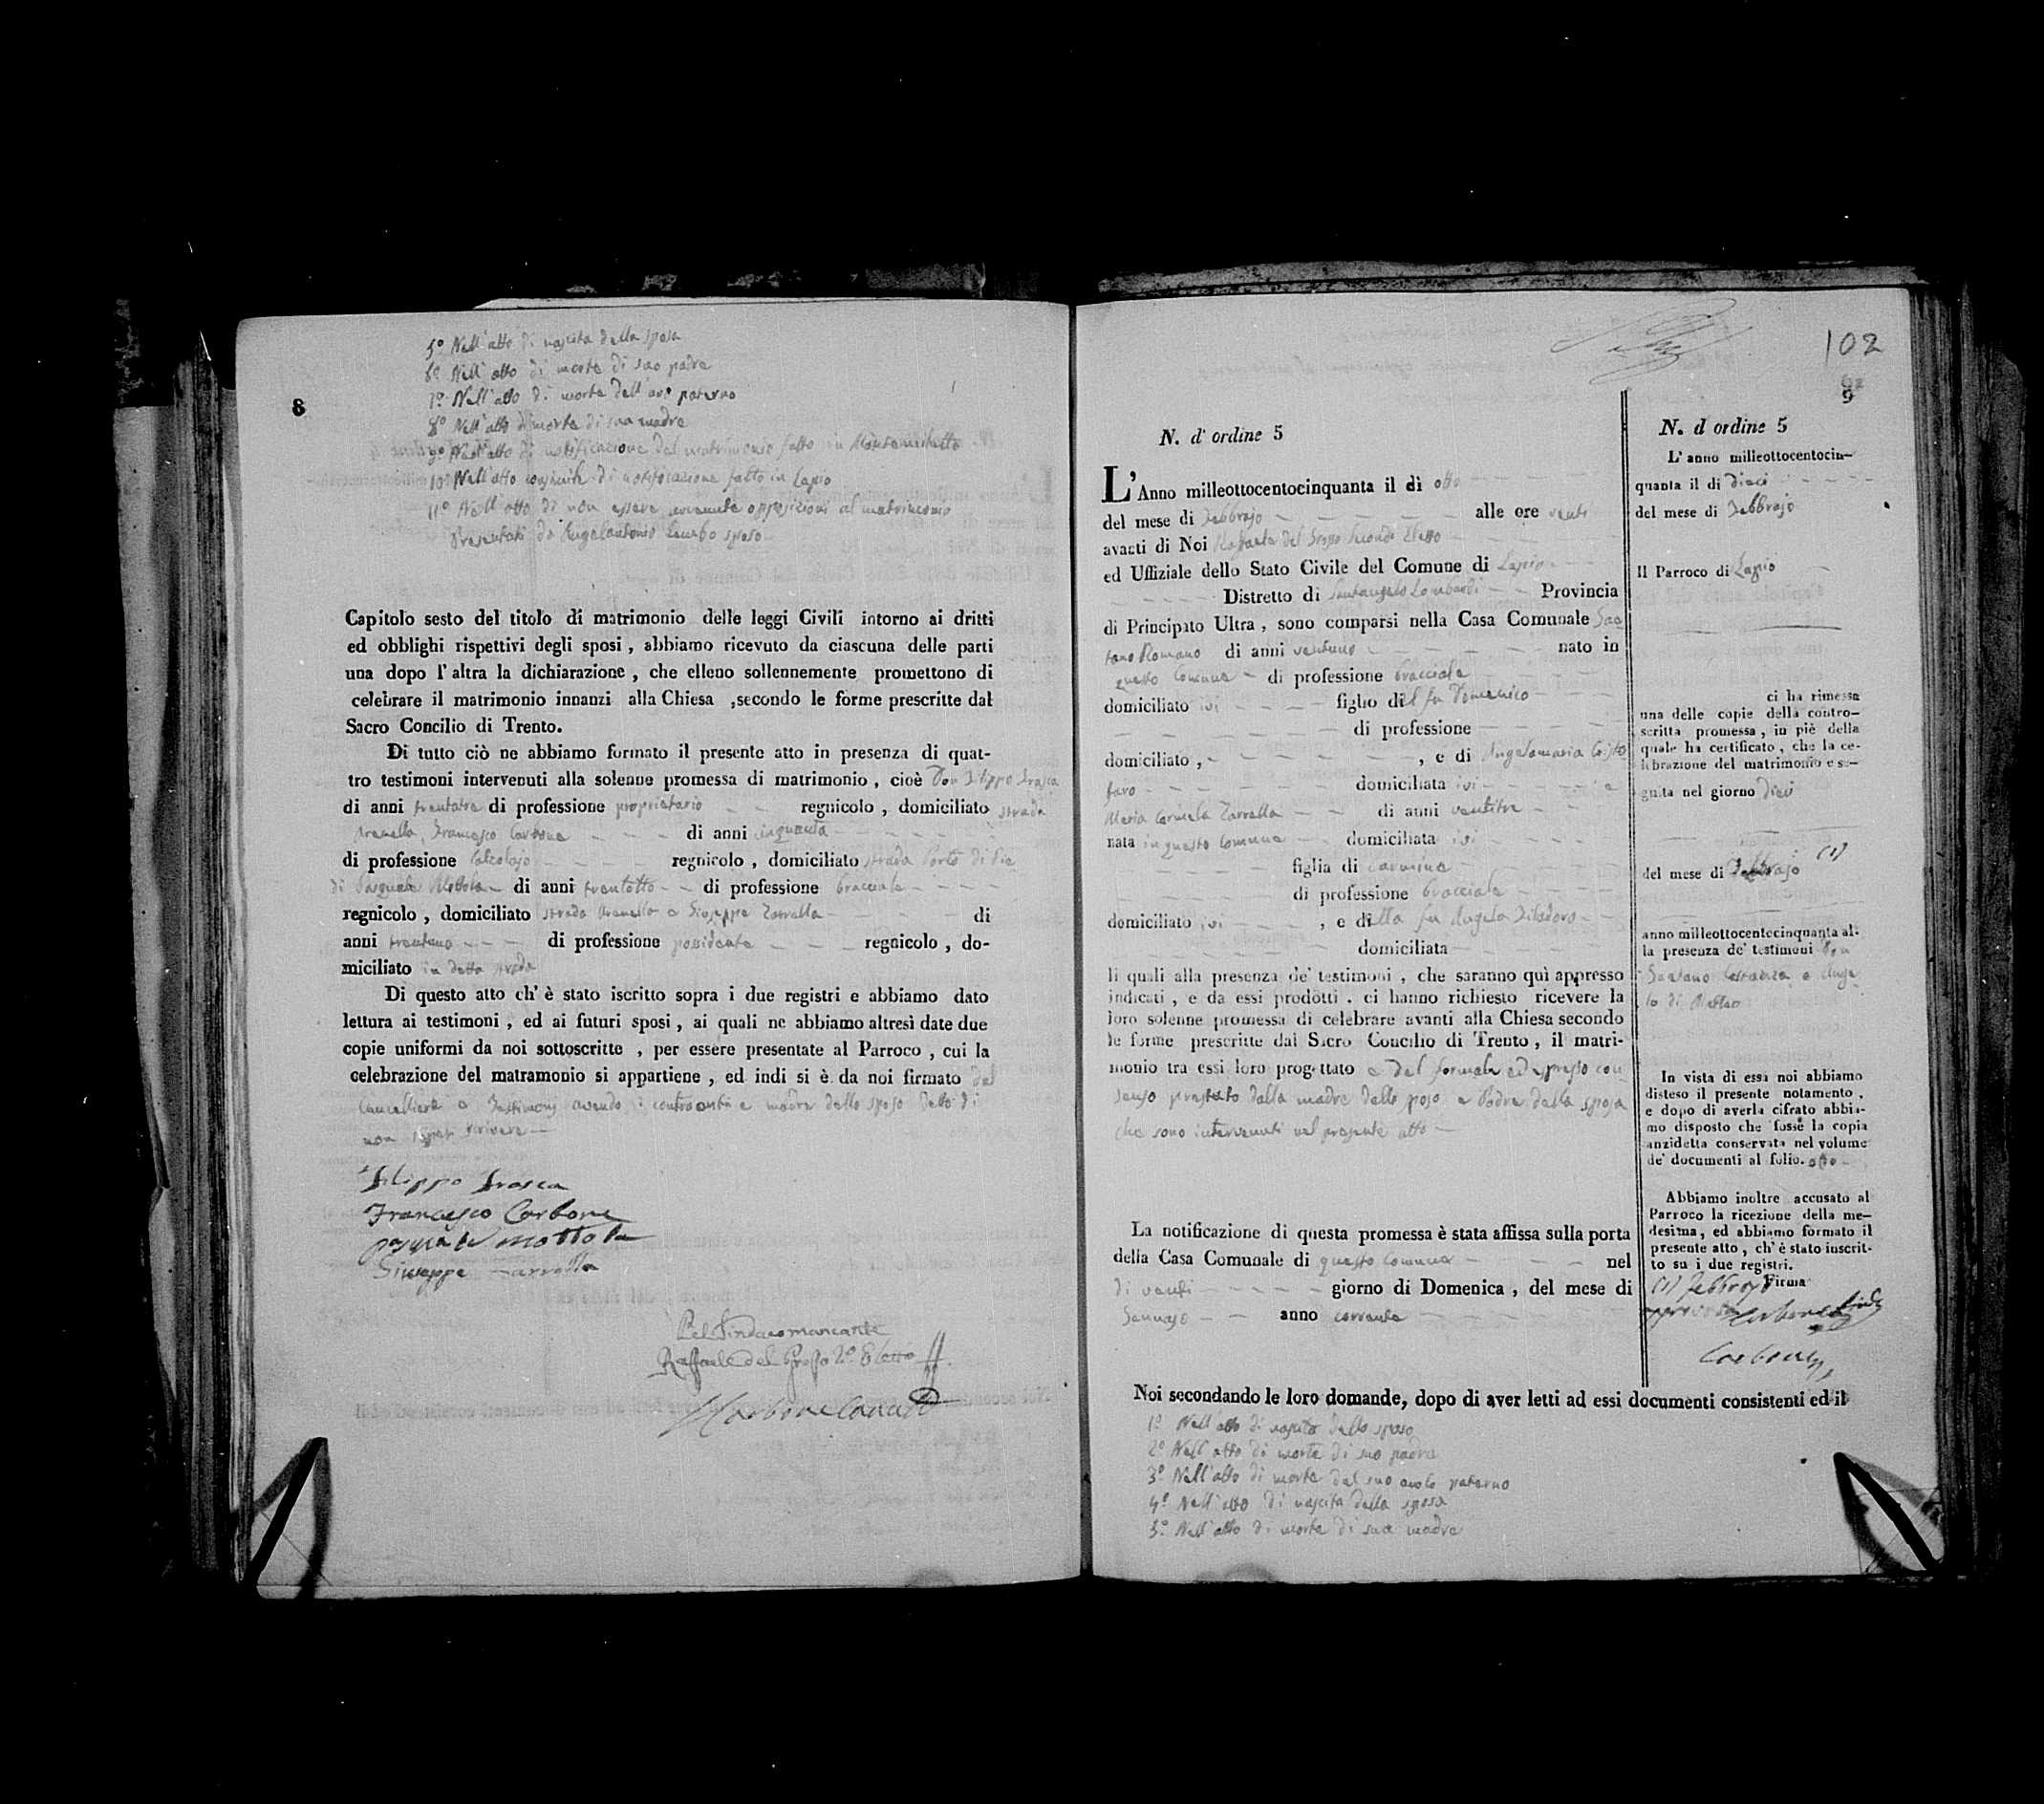 8
5º Nell'atto di nascita della sposa
6º Nell'atto di morte di suo padre
7º Nell'atto di morte dell'avo paterno
8º Nell'atto di morte di sua madre
9º Nell'atto di notificazione del matrimonio fatto in Montemiletto
10º Nell'atto di notificazione fatto in Lapio
11º Nell'atto di non essere avvenute opposizioni al matrimonio
Presentati da Angelantonio sposo
Capitolo sesto del titolo di matrimonio delle leggi Civili intorno ai dritti
ed obblighi rispettivi degli sposi , abbiamo ricevuto da ciascuna delle parti
una dopo l' altra la dichiarazione , che elleno sollennemente promettono di
celebrare il matrimonio innanzi alla Chiesa ,secondo le forme prescritte dal
Sacro Concilio di Trento.
Di tutto ciò ne abbiamo formato il presente atto in presenza di quat-
tro testimoni intervenuti alla solenne promessa di matrimonio , cioè Don Filippo Frasca
di anni trentatre di professione proprietario regnicolo , domiciliato strada
Francesco Carbone di anni cinquanta
di professione Calzolajo regnicolo , domiciliato strada Porto di
di Pasquale Mottola di anni trentotto di professione bracciale
regnicolo , domiciliato strada e Giuseppe Zarrella di
anni trentuno di professione possidente regnicolo , do-
miciliato in detta strada
Di questo atto ch' è stato iscritto sopra i due registri e abbiamo dato
lettura ai testimoni , ed ai futuri sposi , ai quali ne abbiamo altresì date due
copie uniformi da noi sottoscritte , per essere presentate al Parroco , cui la
celebrazione del matramonio si appartiene , ed indi si è da noi firmato dal
Cancelliere e Testimonj avendo i contraenti e madre dello sposo detto di
non saper scrivere
Filippo Frasca
Francesco Carbone
Pasquale Mottola
Giuseppe Zarrella
Pel Sindaco mancante
Raffaele del Grosso 2º Eletto
Carbone
102
9
N. d' ordine 5
L'Anno milleottocentocinquanta il dì otto
del mese di Febbrajo alle ore venti
avanti di Noi Raffaele del Grosso Secondo Eletto
ed Uffiziale dello Stato Civile del Comune di Lapio
Distretto di Santangelo Lombardi Provincia
di Principato Ultra , sono comparsi nella Casa Comunale Gae
tano Romano di anni ventuno nato in
questo Comune di professione bracciale
domiciliato ivi figlio del fu Domenico
di professione
domiciliato , , e di Angelamaria Cristo
faro domiciliata ivi e
Maria Carmela Zarrella di anni ventitre
nata in questo Comune domiciliata ivi
figlia di Carmine
di professione bracciale
domiciliato ivi , e della fu Angela
domiciliata
li quali alla presenza de' testimoni , che saranno quì appresso
indicati , e da essi prodotti . ci hanno richiesto ricevere la
loro solenne promessa di celebrare avanti alla Chiesa secondo
le forme prescritte dal Sacro Concilio di Trento , il matri-
monio tra essi loro progettato e del formale ed espresso con
senso prestato dalla madre dello sposo e Padre della sposa
che sono intervenuti nel presente atto
La notificazione di questa promessa è stata affissa sulla porta
della Casa Comunale di questo Comune nel
di venti giorno di Domenica , del mese di
Gennajo anno corrente
Noi secondando le loro domande, dopo di aver letti ad essi documenti consistenti ed il
1º Nell'atto di nascita dello sposo
2º Nell'atto di morte di suo padre
3º Nell'atto di morte del suo avolo paterno
4º Nell'atto di nascita della sposa
5º Nell'atto di morte di sua madre
N. d ordine 5
L' anno milleottocentocin-
quanta il di dieci
del mese di Febbrajo
Il Parroco di Lapio
ci ha rimessa
una delle copie della contro-
scritta promessa , in piè della
quale ha certificato , che la ce-
librazione del matrimonio e se-
guita nel giorno dieci
del mese di Febbrajo (1)
anno milleottocentocinquanta al-
la presenza de' testimoni Don
Gaetano e Ange
lo di
In vista di essa noi abbiamo
disteso il presente notamento ,
e dopo di averla cifrato abbia-
mo disposto che fosse la copia
anzidetta conservata nel volume
de' documenti al folio. otto
Abbiamo inoltre accusato al
Parroco la ricezione della me-
desima , ed abbiamo formato il
presente atto , ch' è stato inscrit-
to su i due registri.
Firma
(1) Febbrajo
Carbone
Carbone